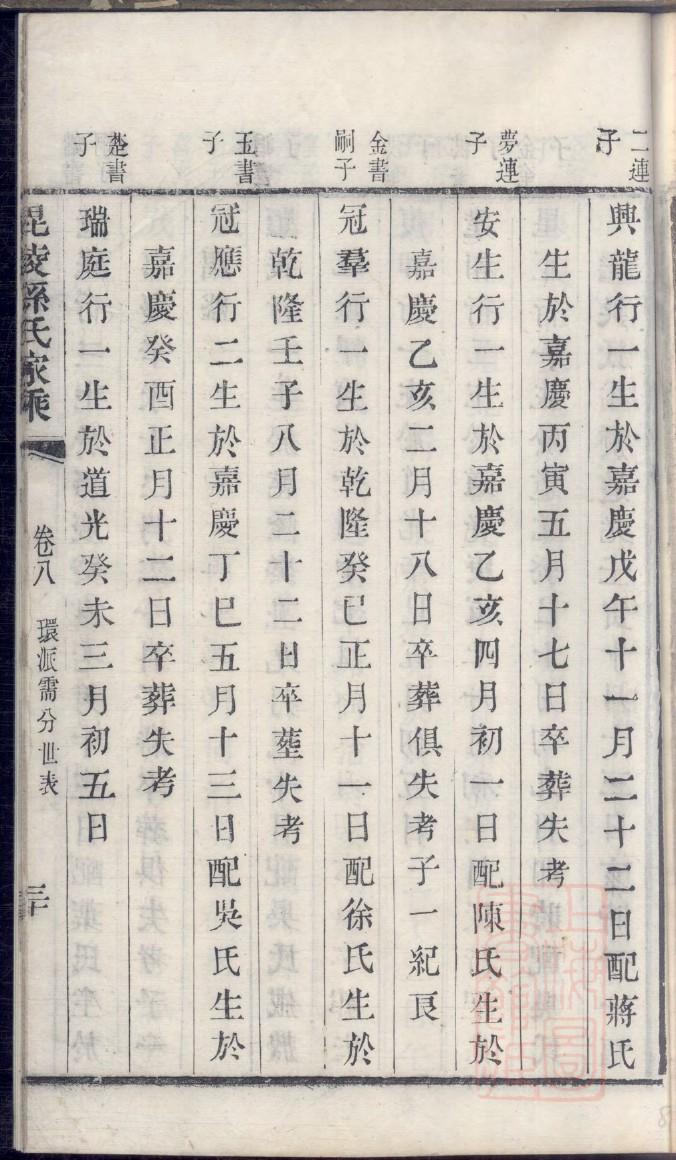 二連子
興龍行一生於嘉慶戊午十一月二十二日配蔣氏
生於嘉慶丙寅五月十七日卒葬失考
夢連子
安生行一生於嘉慶乙亥四月初一日配陳氏生於
嘉慶乙亥二月十八日卒葬俱失考子一紀良
金書嗣子
冠羣行一生於乾隆癸巳正月十一日配徐氏生於
乾隆壬子八月二十二日卒塟失考
玉書子
冠應行二生於嘉慶丁巳五月十三日配吳氏生於
嘉慶癸酉正月十二日卒葬失考
楚書子
瑞庭行一生於道光癸未三月初五日
毘陵孫氏家乘 卷八 環派需分世表